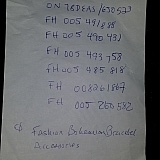 FH 005 491888
FH 005 490431
FH 005 493753
FH 005 485818
FH 008261867
FH 005 260582
Fashion Bohemian Bracelet
Accessories